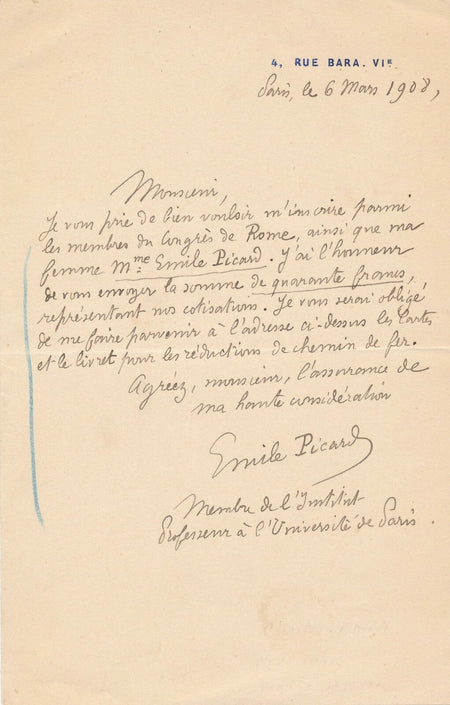 4, RUE BARA. VIE
Paris, le 6 Mars 1908,
Monsieur,
Je vous prie de bien vouloir m'inscrire parmi
les membres du Congrès de Rome, ainsi que ma
femme Mme Emile Picard. J'ai l'honneur
de vous envoyer la somme de quarante francs,
représentant nos cotisations. Je vous serai obligé
de me faire parvenir à l'adresse ci-dessus les cartes
et le livret pour les réductions de chemin de fer.
Agréez, monsieur, l'assurance de
ma haute considération
Emile Picard
Membre de l'Institut
Professeur à l'Université de Paris.